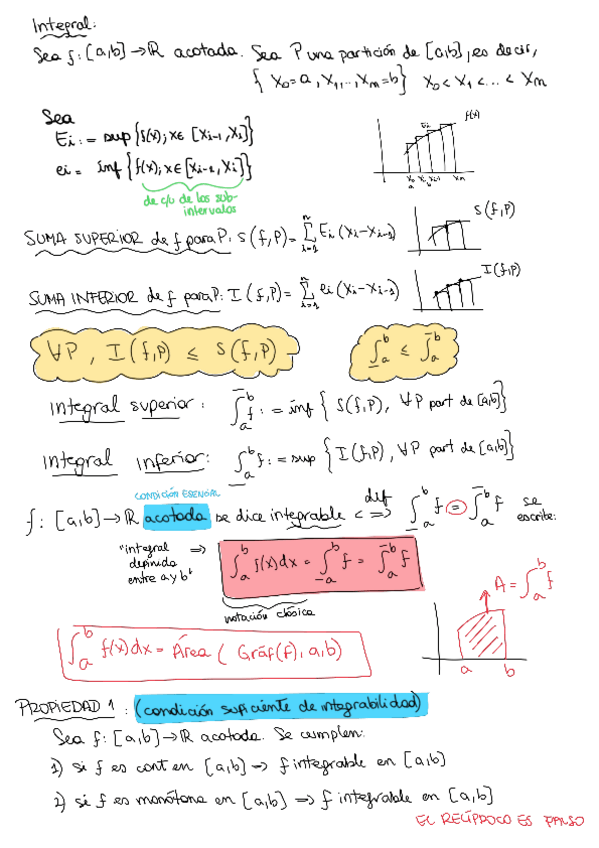 Integral:
Sea f: [a,b] → ℝ acotada. Sea P una partición de [a,b], es decir,
{ x₀=a, x₁,..., xₘ=b } x₀ < x₁ <... < xₘ
Sea
Eᵢ := sup {f(x); x∈ [xᵢ₋₁, xᵢ]}
eᵢ = inf {f(x); x∈ [xᵢ₋₁, xᵢ]}
de c/u de los sub-
intervalos
f(x)
Eᵢ
x₀ x₁ xᵢ xᵢ₊₁ xₘ
a
SUMA SUPERIOR de f para P: S(f,P) = ∑ⁿᵢ₌₁ Eᵢ (xᵢ-xᵢ₋₁)
S(f,P)
SUMA INFERIOR de f para P: I(f,P) = ∑ⁿᵢ₌₁ eᵢ (xᵢ-xᵢ₋₁)
I(f,P)
∀P, I(f,P) ≤ S(f,P)
∫̲ₐᵇ ≤ ∫̅ₐᵇ
Integral superior: ∫̅ₐᵇ f := inf { S(f,P), ∀P part de [a,b]}
Integral inferior: ∫̲ₐᵇ f := sup { I(f,P), ∀P part de [a,b]}
CONDICIÓN ESENCIAL
f: [a,b] → ℝ acotada se dice integrable <=> def ∫̲ₐᵇ f = ∫̅ₐᵇ f se
escribe:
"integral
definida
entre a y b" => ∫ₐᵇ f(x)dx = ∫̲ₐᵇ f = ∫̅ₐᵇ f
notación clásica
A = ∫ₐᵇ f
a b
∫ₐᵇ f(x)dx = Área ( Gráf(f), a,b)
PROPIEDAD 1: (condición suficiente de integrabilidad)
Sea f: [a,b] → ℝ acotada. Se cumplen:
1) si f es cont en [a,b] => f integrable en [a,b]
2) si f es monótona en [a,b] => f integrable en [a,b]
EL RECÍPROCO ES FALSO